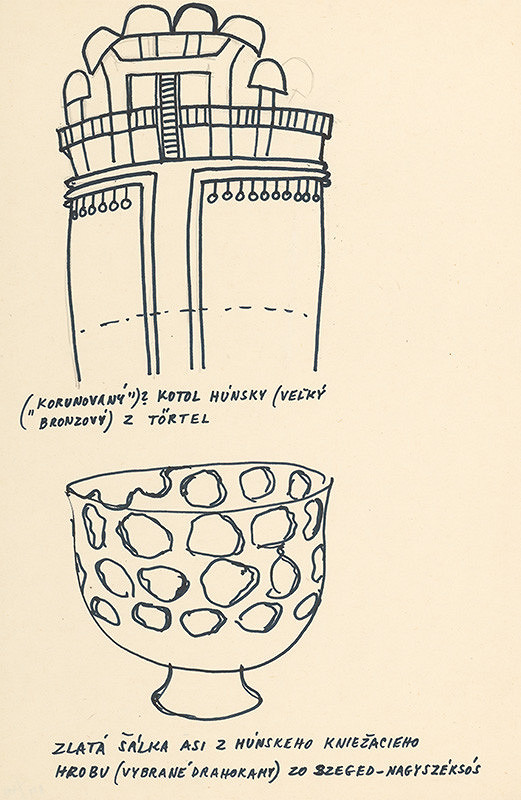 ("KORUNOVANÝ")? KOTOL HÚNSKY (VEĽKÝ
(" BRONZOVÝ) Z TÖRTEL
ZLATÁ ŠÁLKA ASI Z HÚNSKEHO KNIEŽACIEHO
HROBU (VYBRANÉ DRAHOKAMY) ZO SZEGED-NAGYSZÉKSÓS